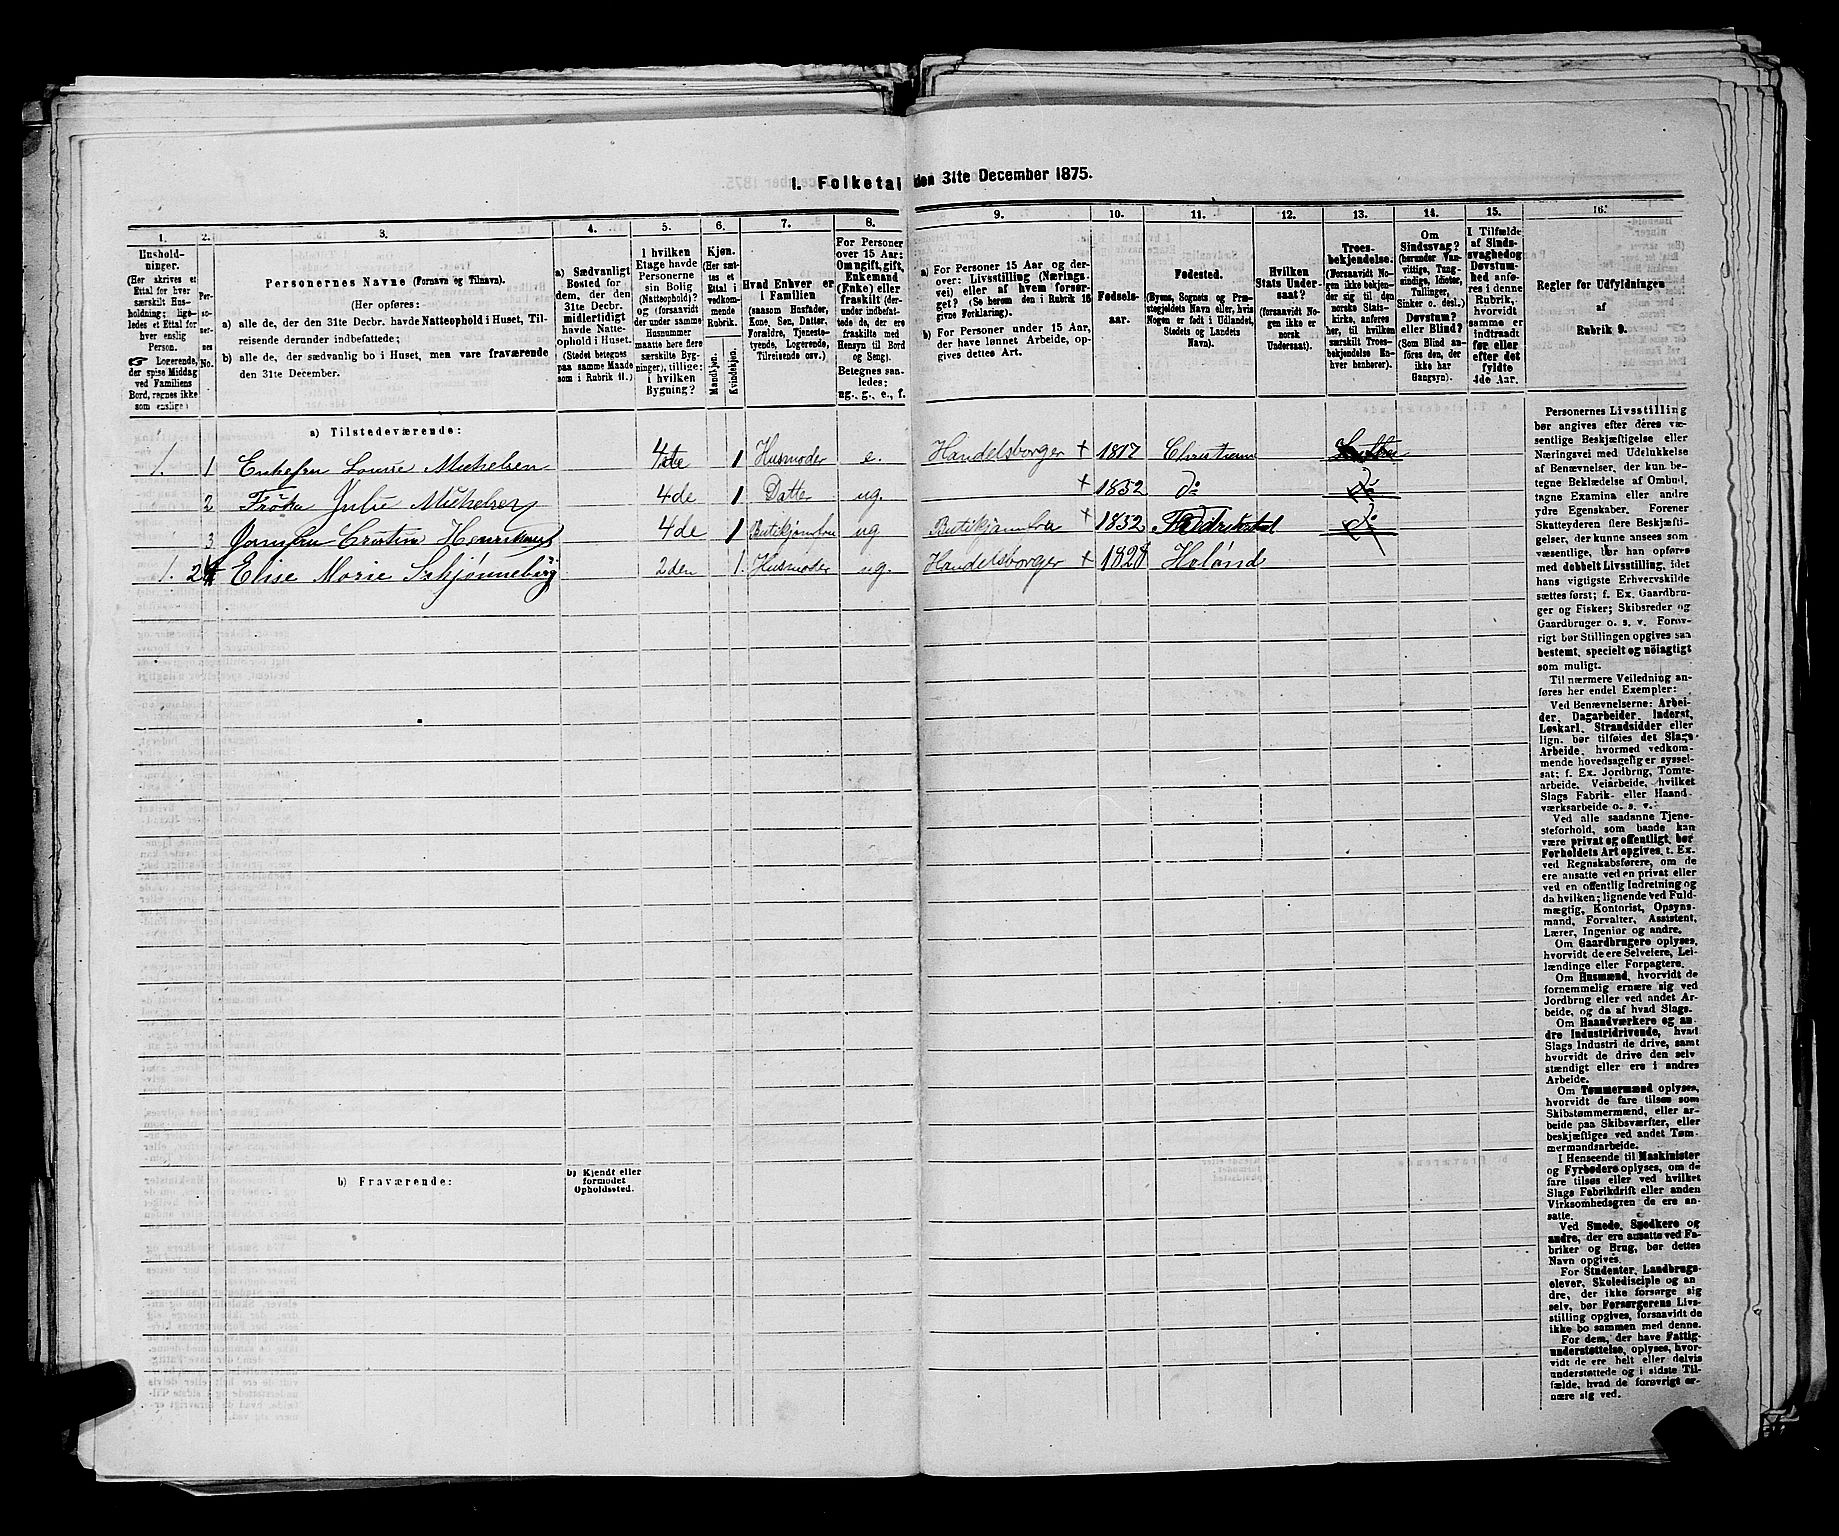 1. Folketal den 31te December 1875.
1. 2. 3. 4. 5. 6. 7. 8. 9. 10. 11. 12. 13. 14. 15. 16.
Hushold-
ninger.
(Her skrives et
Ettal for hver
særskilt Hus-
holdning; lige-
ledes et Ettal for
hver enslig
Person.
☞ Logerende,
der spise Middag
ved Familiens
Bord, regnes ikke
som enslige.)
Per-
so-
ner-
nes
No.
Personernes Navne (Fornavn og Tilnavn).
(Her opføres:
a) alle de, der den 31te Decbr. havde Natteophold i Huset, Til-
reisende derunder indbefattede;
b) alle de, der sædvanlig bo i Huset, men vare fraværende
den 31te December.
a) Sædvanligt
Bosted for
dem, der den
31te Decbr.
midlertidigt
havde Natte-
ophold i Huset.
(Stedet betegnes
paa samme Maade
som i Rubrik 11.)
I hvilken
Etage havde
Personerne
sin Bolig
(Natteophold)?
og (forsaavidt
der under samme
Husnummer
maatte here flere
særskilte Byg-
ninger), tillige:
i hvilken
Bygning?
Kjøn.
(Her sæt-
tes et
Ettal i
vedkom-
mende
Rubrik.
Mandkjøn.
Kvindekjøn.
Hvad Enhver er
i Familien
(saasom Husfader,
Kone, Søn, Datter,
Forældre, Tjeneste-
tyende, Logerende,
Tilreisende osv.)
For Personer
over 15 Aar:
Om ugift, gift,
Enkemand
(Enke) eller
fraskilt (der-
under indbefat-
tede de, der ere
fraskilte med
Hensyn til Bord
og Seng).
Betegnes saa-
ledes:
ug., g., e., f.
a) For Personer 15 Aar og der-
over: Livsstilling (Nærings-
vei) eller af hvem forsør-
get? (Se herom den i Rubrik 16
givne Forklaring).
b) For Personer under 15 Aar,
der have lønnet Arbeide, op-
gives dettes Art.
Fødsels-
aar.
Fødested.
(Byens, Sognets og Præ-
stegjeldets Navn eller, hvis
Nogen er født i Udlandet,
Stedets og Landets
Navn).
Hvilken
Stats Under-
saat?
(forsaavidt No-
gen ikke er
norsk
Undersaat).
Troes-
bekjendelse.
(Forsaavidt No-
gen ikke bekjen-
der sig til den
norske Stats-
kirke, anføres
her, til hvilken
særskilt Troes-
bekjendelse En-
hver henhører).
Om
Sindssvag?
(herunder Van-
vittige, Tung-
sindige, Idioter,
Tullinger,
Sinker o. desl.)
Døvstum?
eller Blind?
(Som Blind an-
føres den, der
ikke har
Gangsyn).
I Tilfælde
af Sinds-
svaghed og
Døvstum-
hed anfø-
res i denne
Rubrik,
hvorvidt
samme er
indtraadt
før eller
efter det
fyldte
4de Aar.
Regler for Udfyldningen
af
Rubrik 9.
a) Tilstedeværende:
1. 1 Enkefru Louise Mickelsen 4de 1 Husmoder e. Handelsborger + 1817 Christiania
2 Frøken Julie Mickelsen 4de 1 Datte ug. + 1852 do do
3 Jomfru Cristine Henriksen 4de 1 Butikjomfru ug. Butikjomfru + 1832 Fredrikstad do
1. 2 Elise Marie Schjønneberg 2den 1. Husmoder ug. Handelsborger + 1828 Høland
b) Fraværende:
b) Kjendt eller
formodet
Opholdssted.
Personernes Livsstilling
bør angives efter deres væ-
sentlige Beskjæftigelse eller
Næringsvei med Udelukkelse
af Benævnelser, der kun be-
tegne Beklædelse af Ombud,
tagne Examina eller andre
ydre Egenskaber. Forener
Skatteyderen flere Beskjæfti-
gelser, der kunne ansees som
væsentlige, bør han opføres
med dobbelt Livsstilling, idet
hans vigtigste Erhvervskilde
sættes først; f. Ex. Gaardbru-
ger og Fisker; Skibsreder og
Gaardbruger o. s. v. Forøv-
rigt bør Stillingen opgives saa
bestemt, specielt og nøiagtigt
som muligt.
Til nærmere Veiledning an-
føres her endel Exempler:
Ved Benævnelserne: Arbei-
der, Dagarbeider, Inderst,
Løskarl, Strandsidder eller
lign. bør tilføies det Slags
Arbeide, hvormed vedkom-
mende hovedsagelig er syssel-
sat; f. Ex. Jordbrug, Tomte-
arbeide, Veiarbeide, hvilket
Slags Fabrik- eller Haand-
værksarbeide o. s. v.
Ved alle saadanne Tjene-
steforhold, som baade kan
være privat og offentligt, bør
Forholdets Art opgives, t. Ex.
ved Regnskabsførere, om de
ere ansatte ved en privat eller
ved en offentlig Indretning og
da hvilken; lignende ved Fuld-
mægtig, Kontorist, Opsyns-
mand, Forvalter, Assistent,
Lærer, Ingeniør og andre.
Om Gaardbrugere oplyses,
hvorvidt de ere Selveiere, Lei-
lændinge eller Forpagtere.
Om Husmænd, hvorvidt de
fornemmelig ernære sig ved
Jordbrug eller ved andet Ar-
beide, og da af hvad Slags.
Om Haandværkere og an-
dre Industridrivende, hvad
Slags Industri de drive, samt
hvorvidt de drive den selv-
stændigt eller ere i andres
Arbeide.
Om Tømmermænd oplyses,
hvorvidt de fare tilsøs som
Skibstømmermænd, eller ar-
beide paa Skibsværfter, eller
beskjæftiges ved andet Tøm-
mermandsarbeide.
I Henseende til Maskinister
og Fyrbødere oplyses, om de
fare tilsøs eller ved hvilket
Slags Fabrikdrift eller anden
Virksomhedsgren de ere an-
satte.
Ved Smede, Snedkere og
andre, der ere ansatte ved Fa-
briker og Brug, bør dettes
Navn opgives.
For Studenter, Landbrugs-
elever, Skoledisciple og an-
dre, der ikke forsørge sig
selv, bør Forsørgerens Livs-
stilling opgives, forsaavidt de
ikke bo sammen med denne.
For dem, der have Fattig-
understøttelse, oplyses, hvor-
vidt de ere helt eller delvis
understøttede og i sidste Til-
fælde, hvad de forøvrigt er-
nære sig ved.